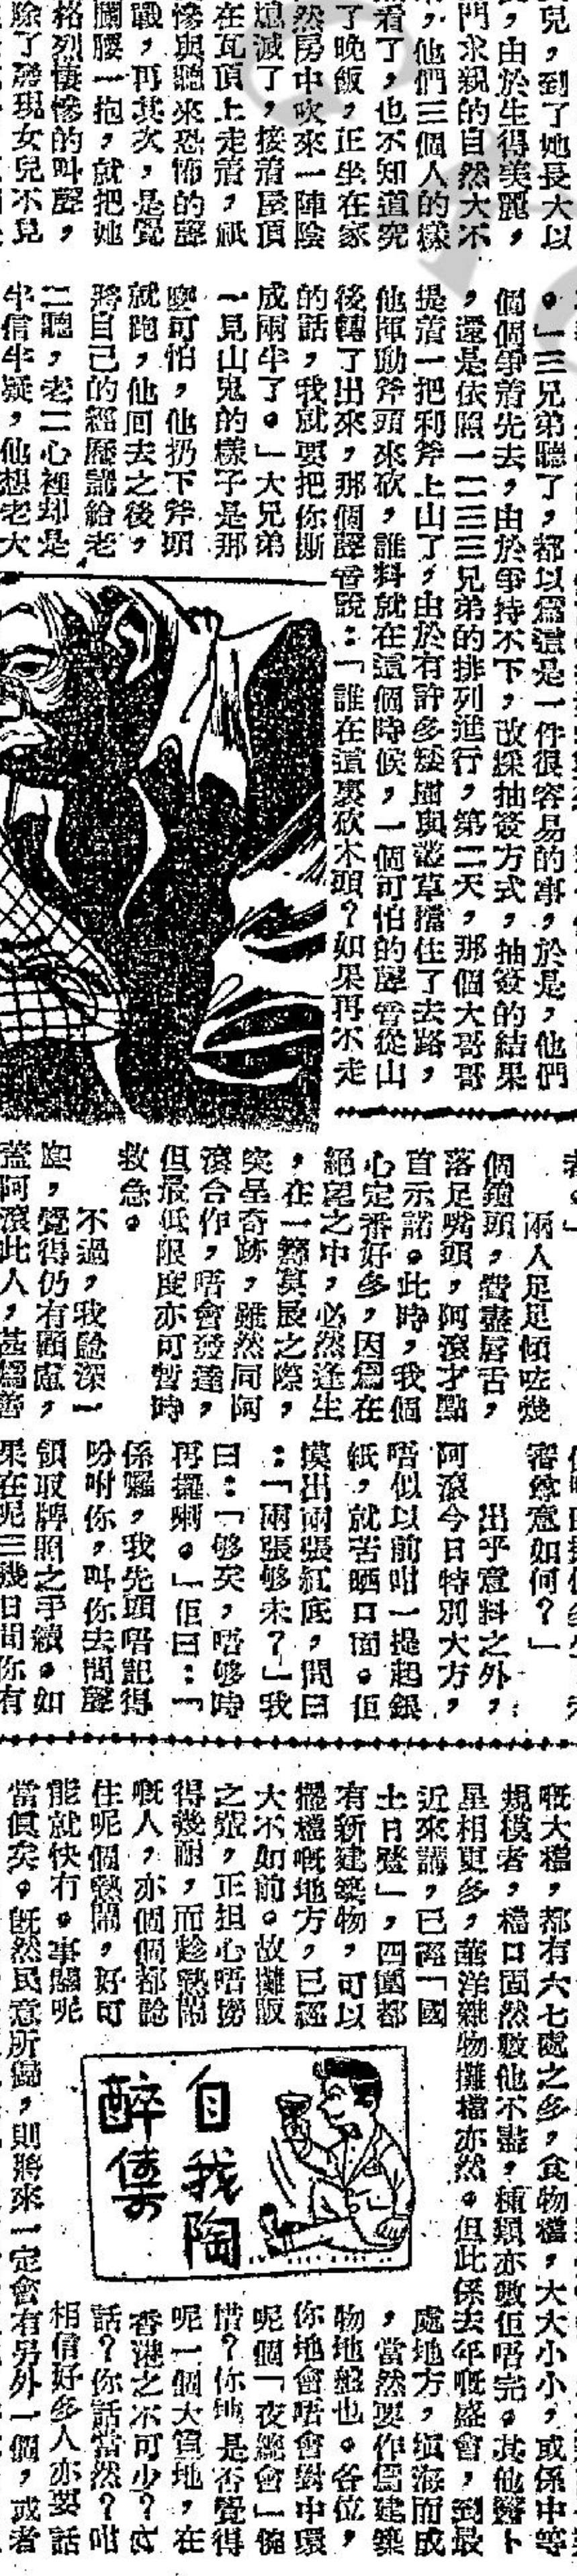 兒，到了她長大以
，由於生得美麗，
門求親的自然大不
，他們三個人的樣
着了，也不知道究
了晚飯，正坐在家
然房中吹來一陣陰
熄滅了，接着屋頂
在瓦頂上走着，祇
慘與聽來恐怖的聲
戰，再其次，是覺
攔腰一抱，就把她
格烈悽慘的叫聲，
除了發現女兒不見
。」三兄弟聽了，都以爲這是一件很容易的事，於是，他們
個個爭着先去，由於爭持不下，改採抽簽方式，抽簽的結果
，還是依照一二三三兄弟的排列進行，第二天，那個大哥哥
提着一把利斧上山了，由於有許多矮樹與叢草擋住了去路，
他揮動斧頭來砍，誰料就在這個時候，一個可怕的聲音從山
後轉了出來，那個聲音說：「誰在這裏砍木頭？如果再不走
的話，我就要把你撕
成兩半了。」大兄弟
一見山鬼的樣子是那
麼可怕，他扔下斧頭
就跑，他回去之後，
將自己的經歷講給老
二聽，老二心裡却是
半信半疑，他想老大
者。」
兩人足足傾咗幾
個鐘頭，費盡唇舌，
落足嘴頭，阿滾才點
首示諾。此時，我個
心定番好多，因爲在
絕望之中，必然逢生
，在一籌莫展之際，
突呈奇跡，雖然同阿
滾合作，唔會發達，
但最低限度亦可暫時
救急。
不過，我諗深一
層，覺得仍有顧慮，
蓋阿滾此人，甚爲善
審尊意如何？」
出乎意料之外，
阿滾今日特別大方，
唔似以前咁一提起銀
紙，就苦晒口面。佢
摸出兩張紅底，問曰
：「兩張够未？」我
曰：「够矣，唔够時
再攞喇。」佢曰：「
係囉，我先頭唔記得
吩咐你，叫你去問聲
領取牌照之手續。如
果在呢三幾日間你有
嘅大檔，都有六七處之多，食物檔，大大小小，或係中等
規模者，檔口固然數他不盡，種類亦數佢唔完。其他醫卜
星相更多，華洋雜物攤檔亦然。但此係去年嘅盛會，到最
近來講，已經「國
土日蹙」，四圍都
有新建築物，可以
擺檔嘅地方，已經
大不如前。故攤販
之輩，正担心唔撈
得幾耐，而趁熱鬧
嘅人，亦個個都諗
住呢個熱鬧，好可
能就快冇。事關呢
處地方，塡海而成
，當然要作爲建築
物地盤也。各位，
你地會唔會對中環
呢個「夜總會」惋
惜？你地是否覺得
呢一個大笪地，在
香港之不可少？
話？你話當然？咁
相信好多人亦要話
當俱矣。既然民意所歸，則將來一定會有另外一個，或者
自我陶
醉集